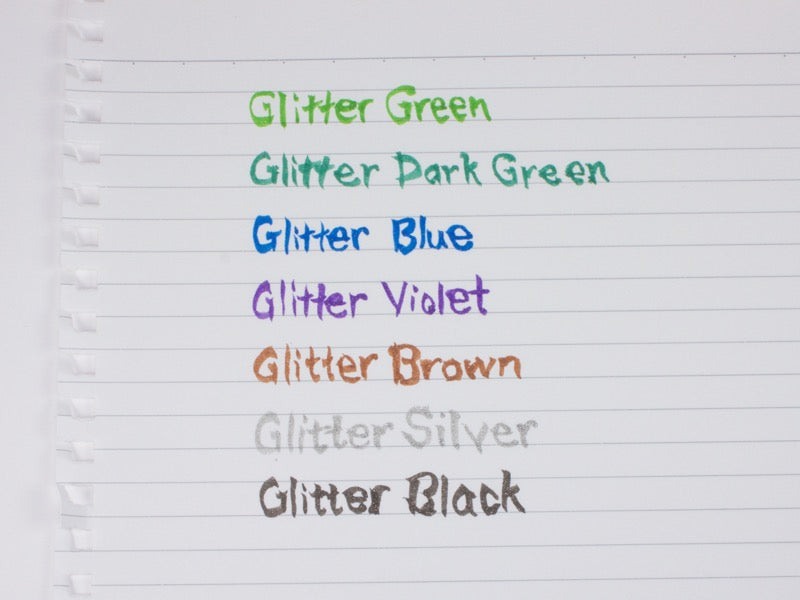 Glitter Green
Glitter Dark Green
Glitter Blue
Glitter Violet
Glitter Brown
Glitter Silver
Glitter Black